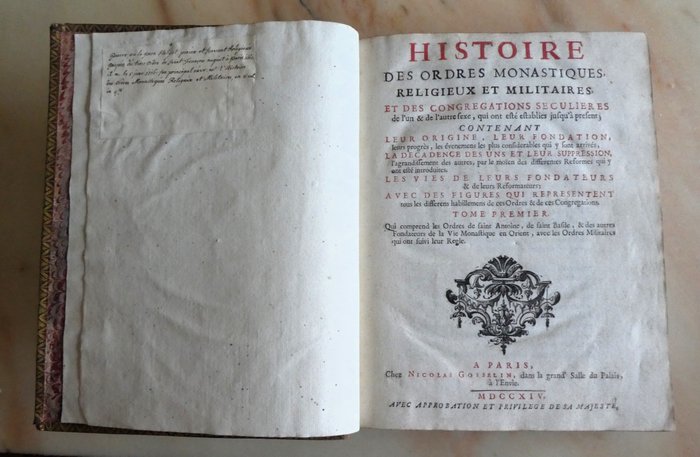 HISTOIRE
DES ORDRES MONASTIQUES,
RELIGIEUX ET MILITAIRES,
ET DES CONGREGATIONS SECULIERES
de l'un & de l'autre sexe, qui ont esté establies jusqu'à present;
CONTENANT
LEUR ORIGINE, LEUR FONDATION,
leurs progrès, les évenemens les plus considerables qui y sont arrivés,
LA DECADENCE DES UNS ET LEUR SUPPRESSION,
l'agrandissement des autres, par le moïen des differentes Reformes qui y
ont esté introduites.
LES VIES DE LEURS FONDATEURS
& de leurs Reformateurs:
AVEC DES FIGURES QUI REPRESENTENT
tous les differens habillemens de ces Ordres & de ces Congregations.
TOME PREMIER.
Qui comprend les Ordres de saint Antoine, de saint Basile, & des autres
Fondateurs de la Vie Monastique en Orient, avec les Ordres Militaires
qui ont suivi leur Regle.
A PARIS,
Chez NICOLAS GOSSELIN, dans la grand' Salle du Palais,
à l'Envie.
MDCCXIV.
AVEC APPROBATION ET PRIVILEGE DE SA MAJESTÉ,